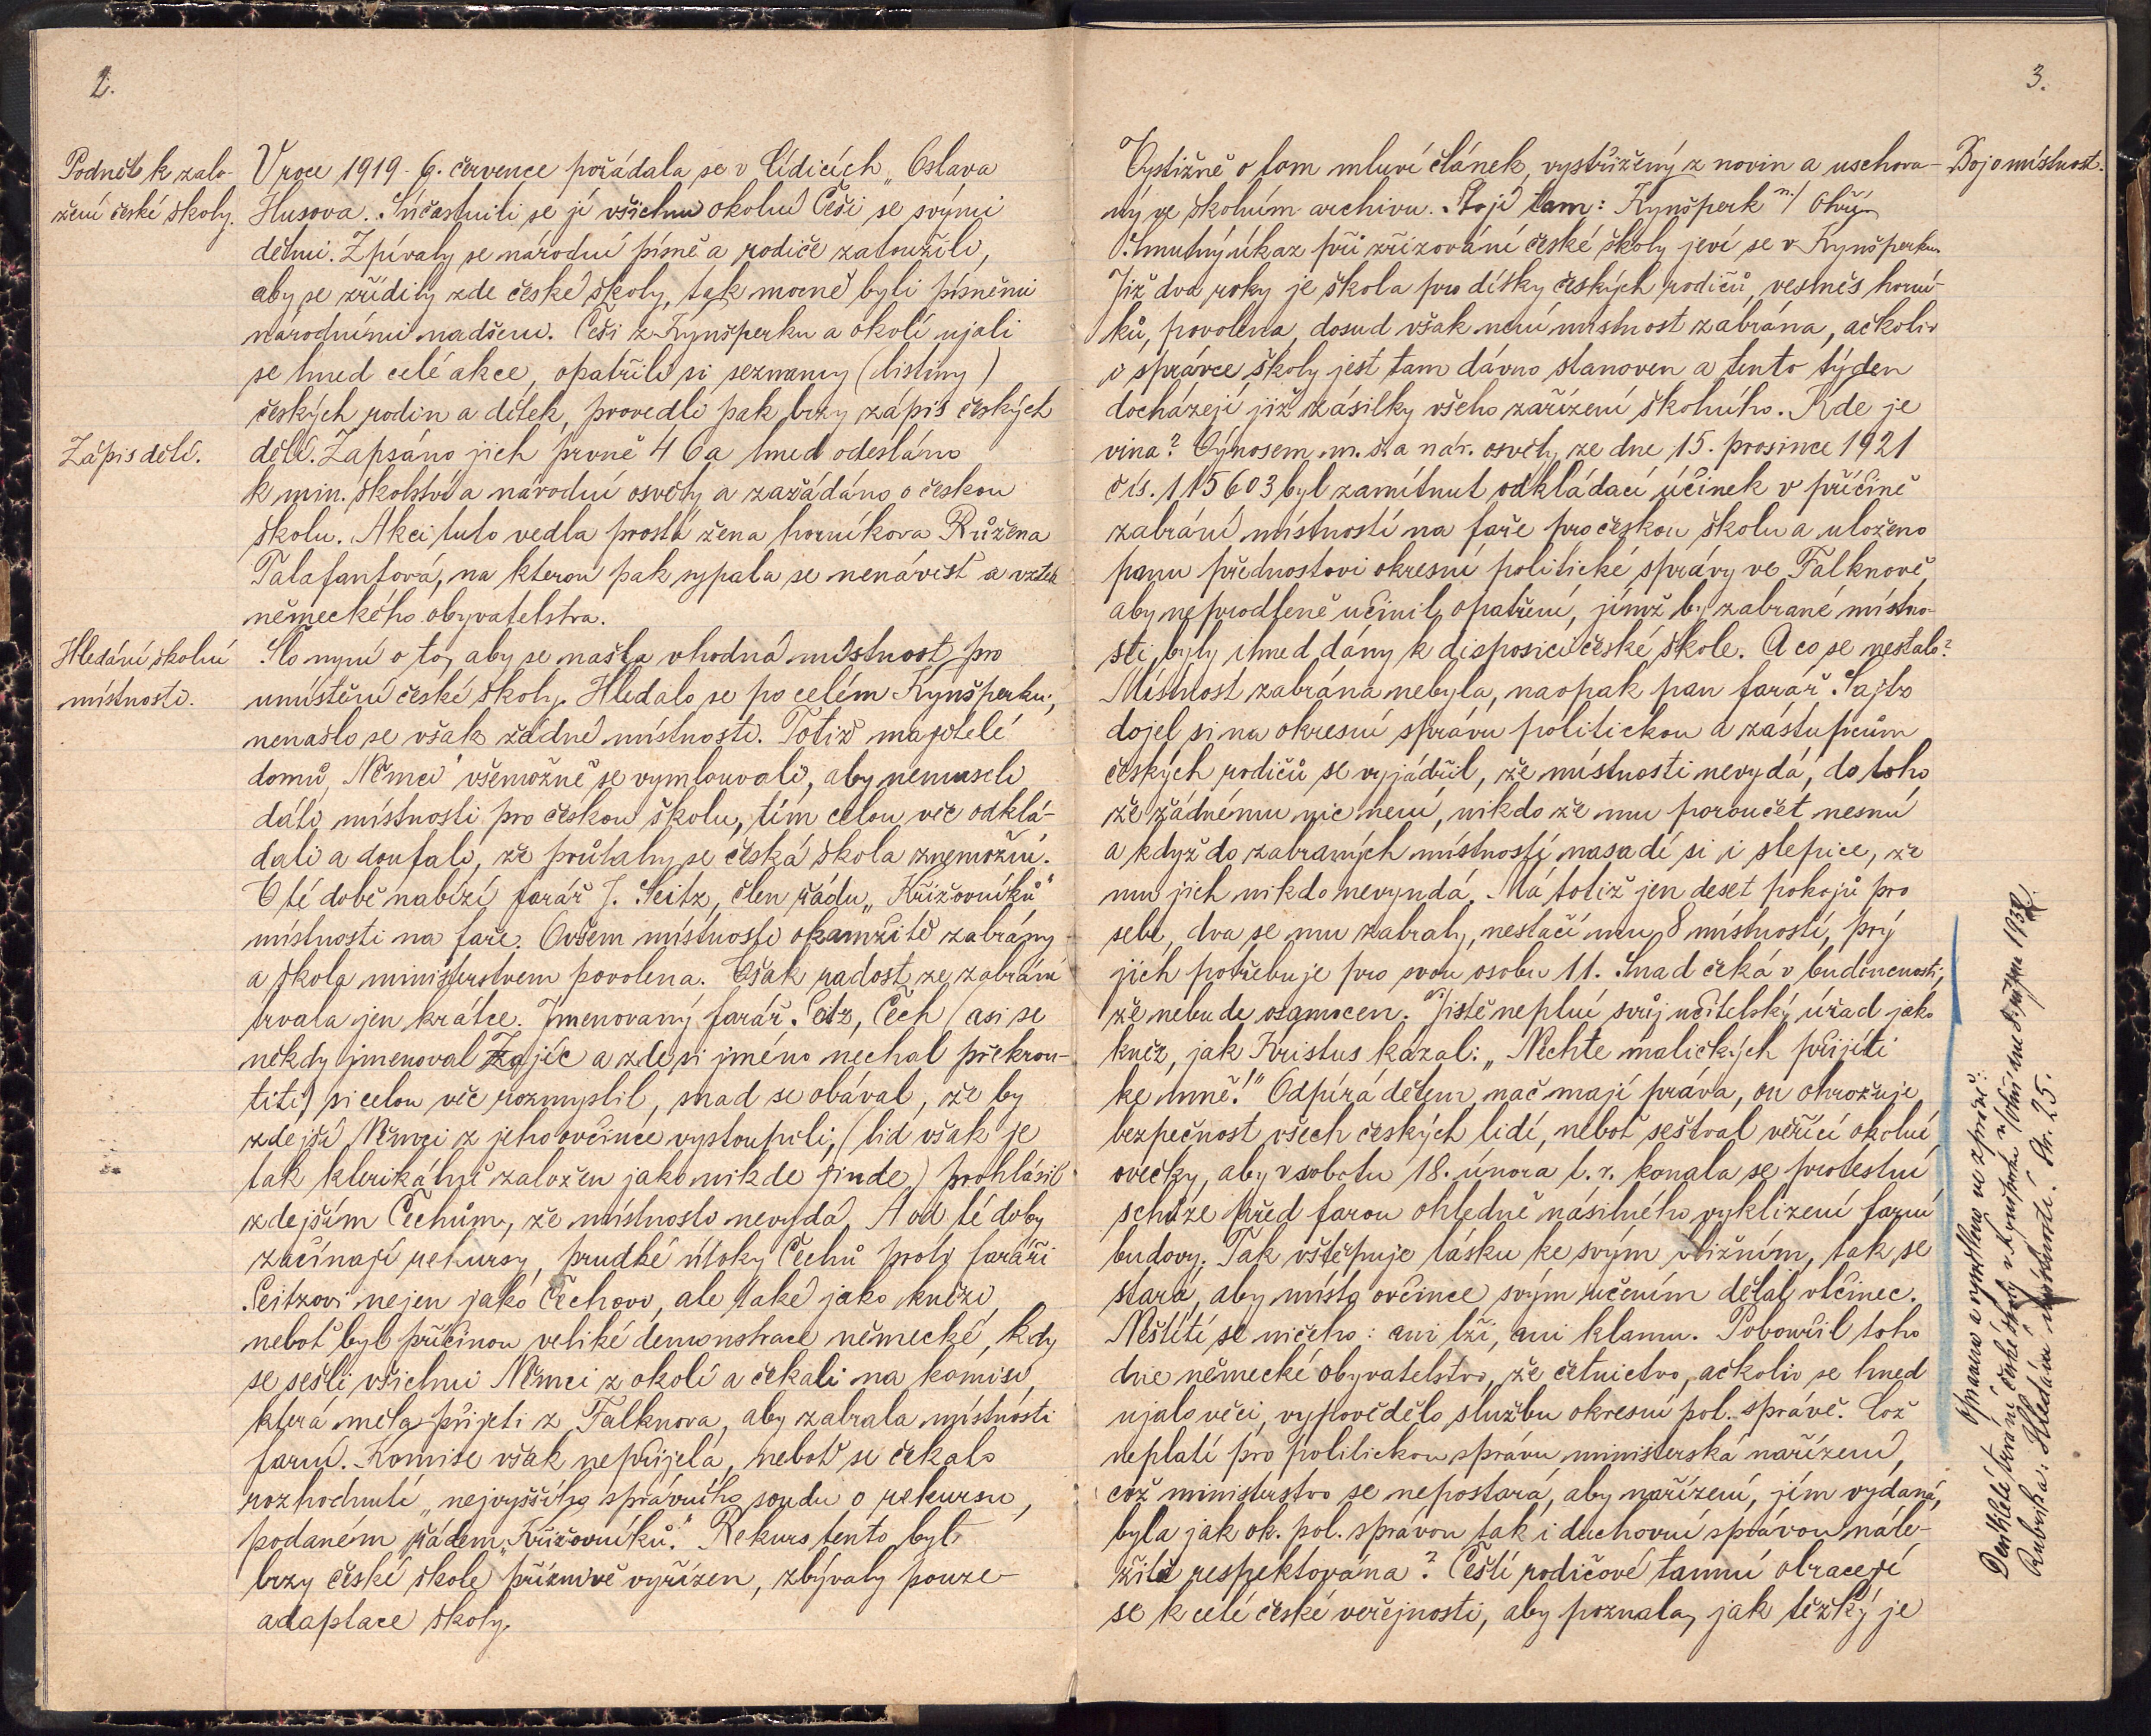 2.
Podnět k zalo-
žení české školy.
V roce 1919 - 6. července pořádala se v Lídicích „Oslava
Husova. Súčastnili se jí všichni okolní Češi se svými
dětmi. Zpívaly se národní písně a rodiče zatoužili,
aby se zřídily zde české školy, tak mocně byli písněmi
národními nadšeni. Češi z Kynšperku a okolí ujali
se hned celé akce, opatřili si seznamy (listiny)
českých rodin a dítek, provedli pak brzy zápis českých
Zápis dětí.
dětí. Zapsáno jich prvně 46 a hned odesláno
k min. školství a národní osvěty a zažádáno o českou
školu. Akci tuto vedla prostá žena horníkova Růžena
Palafantová, na kterou pak sypala se nenávist a vztek
německého obyvatelstva.
Hledání školní
místnosti.
Šlo nyní o to, aby se našla vhodná místnost pro
umístění české školy. Hledalo se po celém Kynšperku,
nenašlo se však žádné místnosti. Totiž majitelé
domů, Němci všemožně se vymlouvali, aby nemuseli
dáti místnosti pro českou školu, tím celou věc odklá-
dali a doufali, že průtahy se česká škola znemožní.
V té době nabízí farář J. Seitz, člen řádu „Křižovníků"
místnosti na faře. Ovšem místnosti okamžitě zabrány
a škola ministerstvem povolena. Však radost ze zabrání
trvala jen krátce. Jmenovaný farář Seitz, Čech (asi se
někdy jmenoval Zajíc a zde si jméno nechal překrou-
titi) si celou věc rozmyslil, snad se obával, že by
zdejší Němci z jeho ovčince vystoupili, (lid však je
tak klerikálně založen jako nikde jinde) prohlásil
zdejším Čechům, že místnosti nevydá. A od té doby
začínají rekursy, prudké útoky Čechů proti faráři
Seitzovi nejen jako Čechovi, ale také jako knězi,
neboť byl příčinou veliké demonstrace německé, kdy
se sešli všichni Němci z okolí a čekali na komisi,
která měla přijeti z Falknova, aby zabrala místnosti
farní. Komise však nepřijela, neboť se čekalo
rozhodnutí „nejvyššího správního soudu o rekursu,
podaném řádem „Křižovníků." Rekurs tento byl
brzy české škole příznivě vyřízen, zbývaly pouze
adaptace školy.
3.
Boj o místnost.
Výstižně o tom mluví článek, vystřižený z novin a uschova-
ný ve školním archivu. Stojí tam: Kynšperk n./ Ohří.
Smutný úkaz při zřizování české školy jeví se v Kynšperku.
Již dva roky je škola pro dítky českých rodičů, vesměs horní-
ků, povolena, dosud však není místnost zabrána, ačkoliv
i správce školy jest tam dávno stanoven a tento týden
docházejí již zásilky všeho zařízení školního. Kde je
vina? Výnosem m. š. a nár. osvěty ze dne 15. prosince 1921
čís. 115603 byl zamítnut odkládací účinek v příčině
zabrání místností na faře pro českou školu a uloženo
panu přednostovi okresní politické správy ve Falknově,
aby neprodleně učinil opatření, jímž by zabrané místno-
sti byly ihned dány k disposici české škole. A co se nestalo?
Místnost zabrána nebyla, naopak pan farář Sajtz
dojel si na okresní správu politickou a zástupcům
českých rodičů se vyjádřil, že místnosti nevydá, do toho
že žádnému nic není, nikdo že mu poroučet nesmí
a když do zabraných místností nasadí si i slepice, že
mu jich nikdo nevyndá. Má totiž jen deset pokojů pro
sebe, dva se mu zabraly, nestačí mu 8 místností, prý
jich potřebuje pro svou osobu 11. Snad čeká v budoucnosti,
že nebude osamocen. Jistě neplní svůj učitelský úřad jako
kněz, jak Kristus kázal: „Nechte maličkých přijíti
ke mně!" Odpírá dětem, nač mají práva, on ohrožuje
bezpečnost všech českých lidí, neboť seštval věřící okolní
ovečky, aby v sobotu 18. února t. r. konala se protestní
schůze před farou ohledně násilného vyklizení farní
budovy. Tak vštěpuje lásku ke svým bližním, tak se
stará, aby místo ovčince svým učením dělal vlčinec.
Neštítí se ničeho: ani lži, ani klamu. Pobouřil toho
dne německé obyvatelstvo, že četnictvo, ačkoliv se hned
ujalo věci, vypovědělo službu okresní pol. správě. Což
neplatí pro politickou správu ministerská nařízení,
což ministerstvo se nepostará, aby nařízení, jím vydaná,
byla jak ok. pol. správou tak i duchovní správou nále-
žitě respektována? Čeští rodičové tamní obracejí
se k celé české veřejnosti, aby poznala, jak těžký je
Opraveno a vysvětleno ve zprávě:
Desítiletí trvání české školy v Kynšperku n/Ohří dne října 1932.
Rubrika: Hledání místnosti. Str. 25.